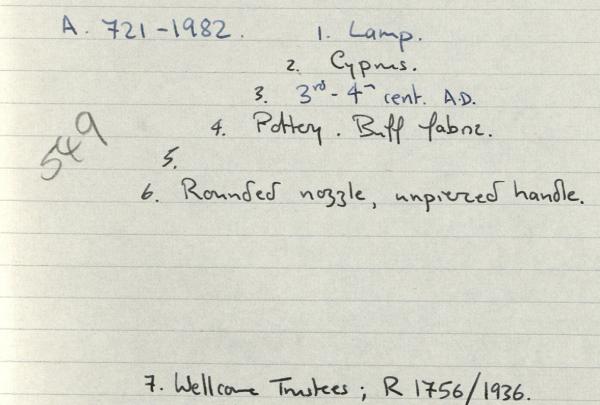 A. 721-1982. 1. Lamp.
2. Cyprus.
3. 3rd - 4th cent. A.D.
4. Pottery. Buff fabric.
549
5.
6. Rounded nozzle, unpierced handle.
7. Wellcome Trustees; R 1756/1936.